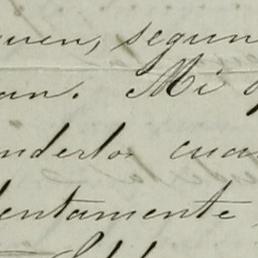 quen, segun
an. Mi
nderlo cua
lentamente